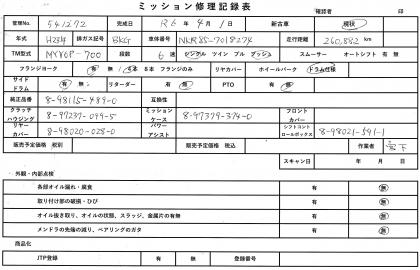 ミッション修理記録表
確認者 印
管理No. 541272 完成日 R6 年 4 月 1 日 新古車 現状
年式 H23年 排ガス記号 BKG 車体番号 NKR85-7018274 走行距離 260,882 km
TM型式 MYY6P-700 段数 6 速 シングル ツイン プル プッシュ スムーサー オートシフト 有 無
フランジヨーク 有 無 4本 8本 フランジのみ リヤカバー ホイールパーク ドラム仕様
サイドドラム 有 無 リターダー 有 無 PTO 有 無
純正品番 8-98115-489-0 互換性
クラッチハウジング 8-97237-099-5 ミッションケース 8-97379-374-0 フロントカバー
リヤーカバー 8-98020-028-0 パワーアシスト シフトコントロールボックス 8-98021-591-1
販売予定価格 税別 販売予定価格 税込 作業者 宮下
スキャン日 年 月 日
外観・内部点検
各部オイル漏れ・腐食 有 無
取り付け部の破損・ひび 有 無
オイル抜き取り、オイルの状態、スラッジ、金属片の有無 有 無
メンドラの先端の減り、ベアリングのガタ 有 無
商品化
JTP登録 有 無 登録番号